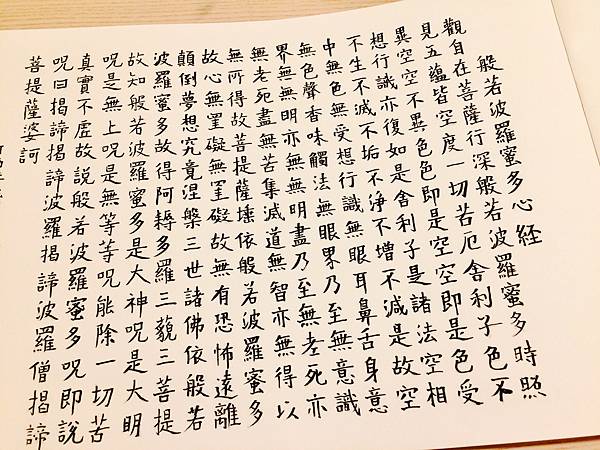 般若波羅蜜多心經
觀自在菩薩行深般若波羅蜜多時照
見五蘊皆空度一切苦厄舍利子色不
異空空不異色色即是空空即是色受
想行識亦復如是舍利子是諸法空相
不生不滅不垢不淨不增不減是故空
中無色無受想行識無眼耳鼻舌身意
無色聲香味觸法無眼界乃至無意識
界無無明亦無無明盡乃至無老死亦
無老死盡無苦集滅道無智亦無得以
無所得故菩提薩埵依般若波羅蜜多
故心無罣礙無罣礙故無有恐怖遠離
顛倒夢想究竟涅槃三世諸佛依般若
波羅蜜多故得阿耨多羅三藐三菩提
故知般若波羅蜜多是大神呪是大明
呪是無上呪是無等等呪能除一切苦
真實不虛故說般若波羅蜜多呪即說
呪曰揭諦揭諦波羅揭諦波羅僧揭諦
菩提薩婆訶